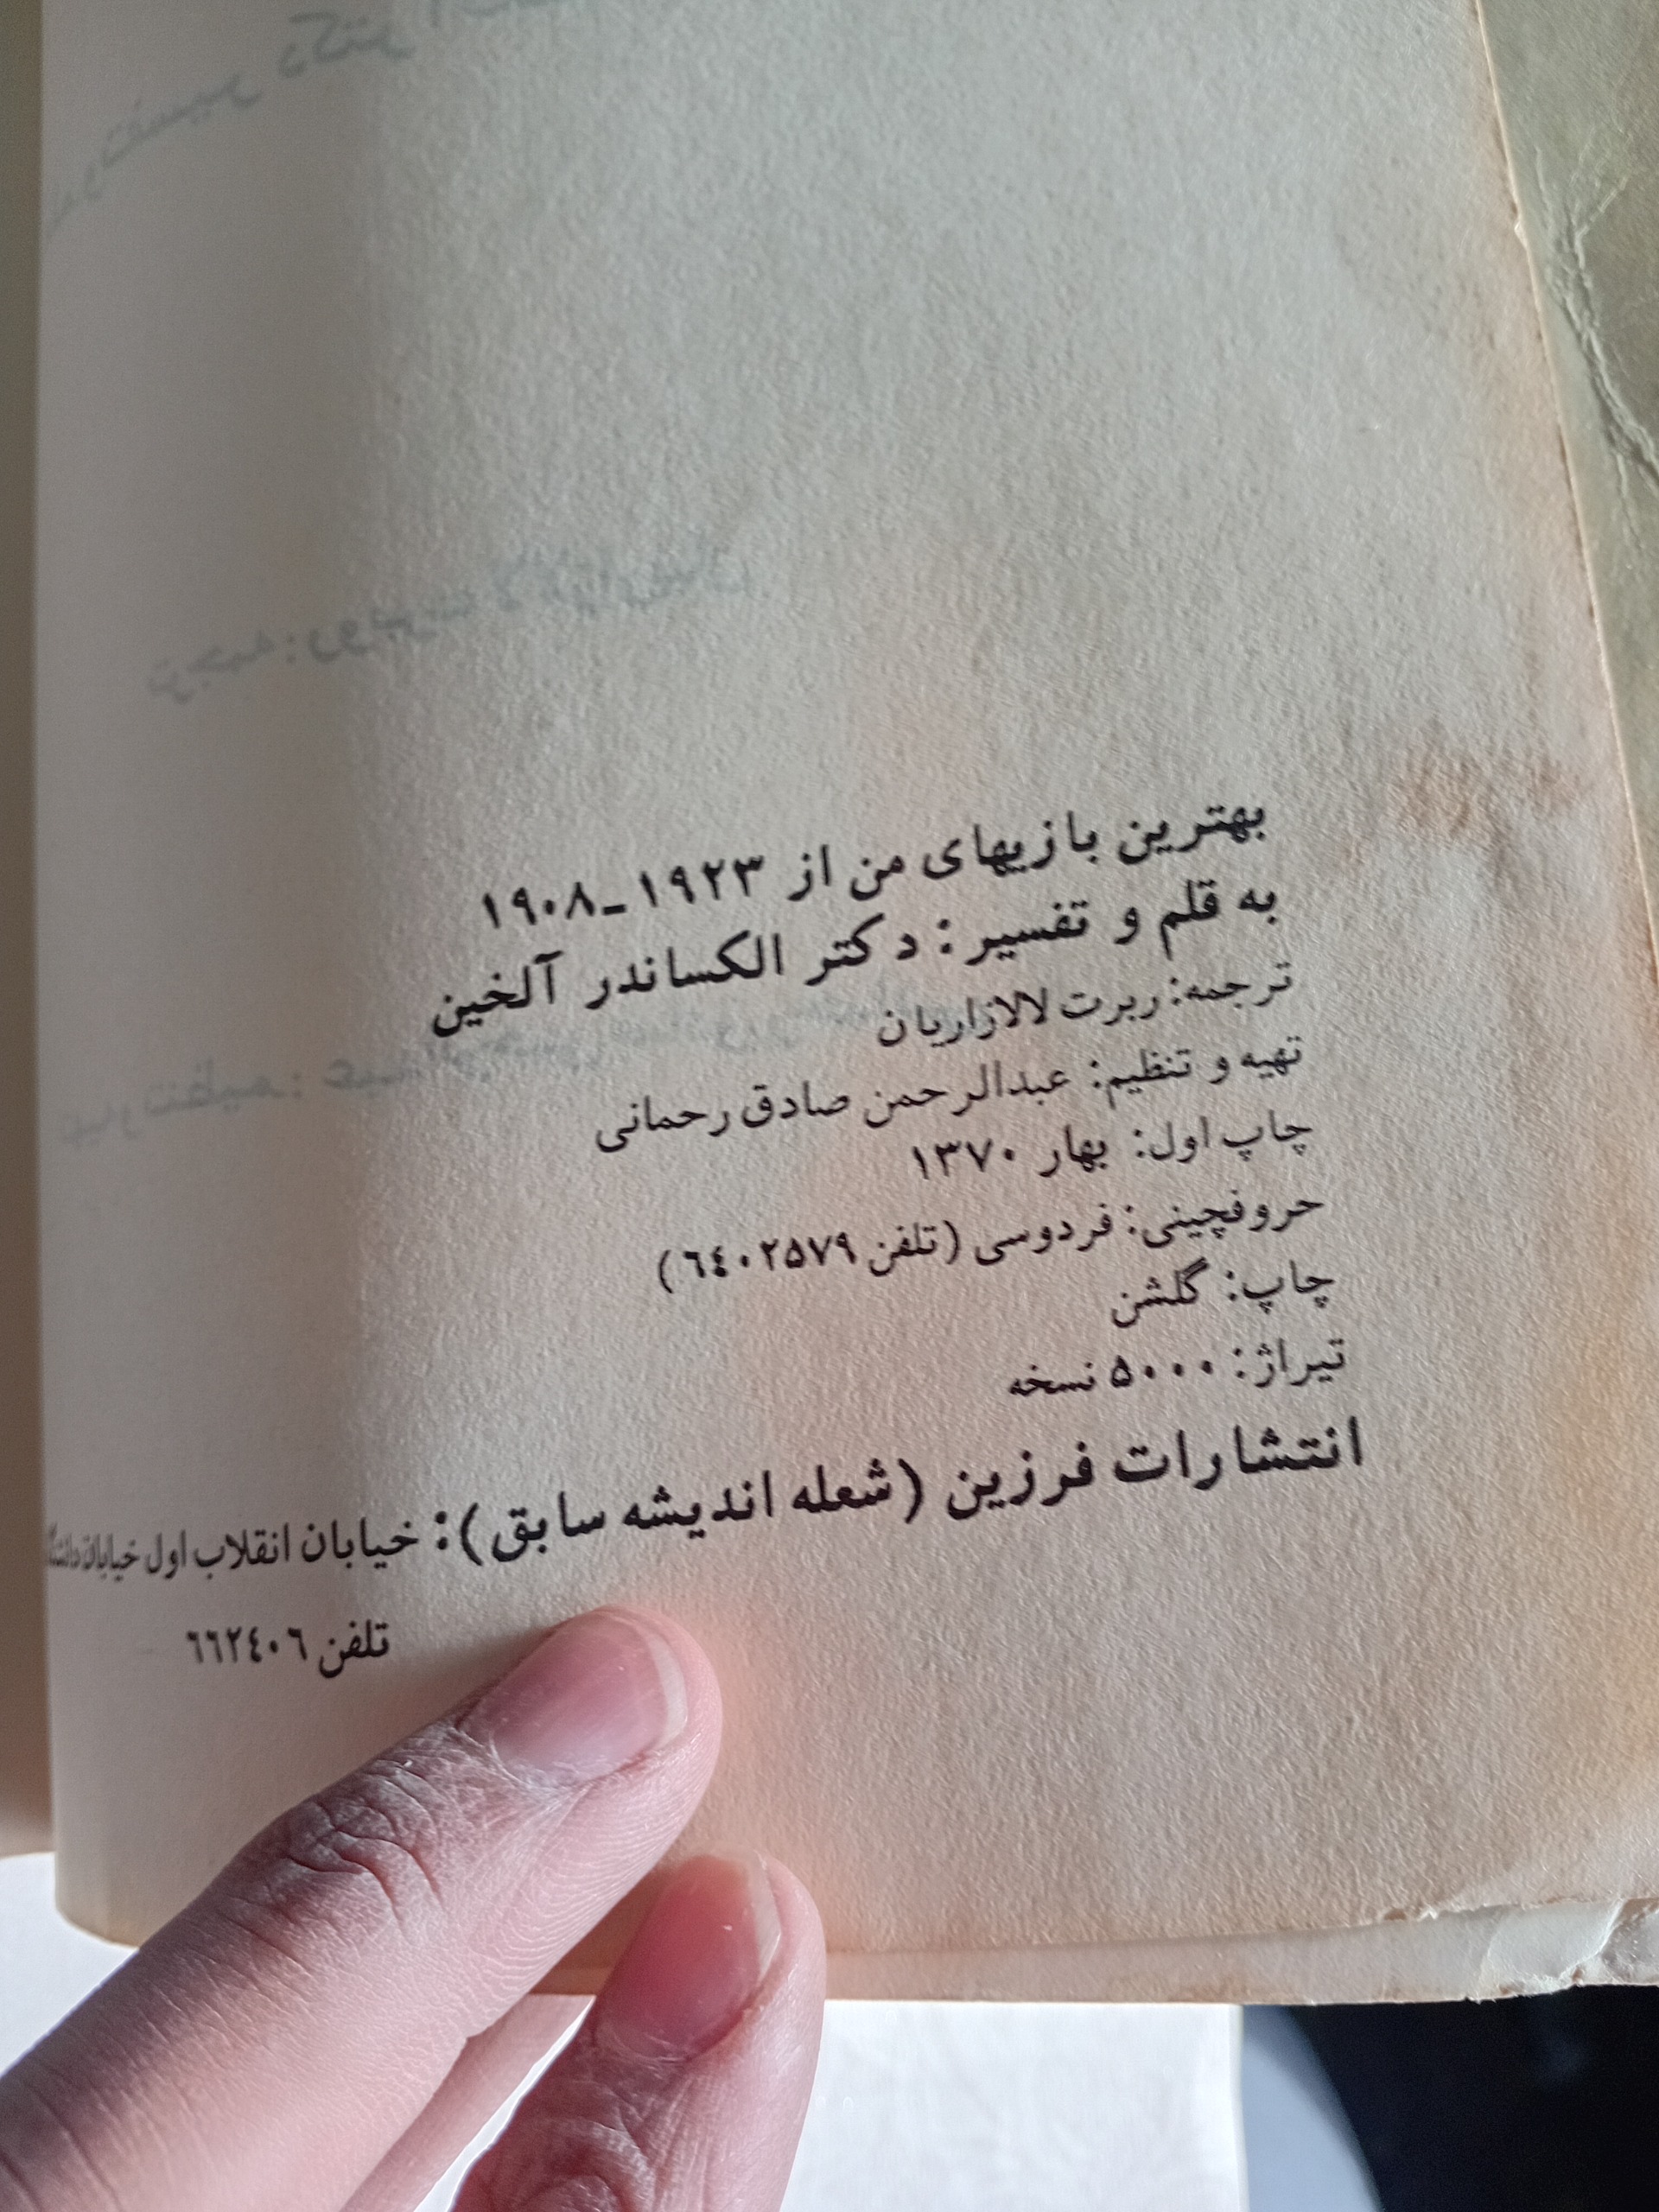 بهترین بازیهای من از ۱۹۲۳ـ۱۹۰۸
به قلم و تفسیر: دکتر الکساندر آلخین
ترجمه: ربرت لالازاریان
تهیه و تنظیم: عبدالرحمن صادق رحمانی
چاپ اول: بهار ۱۳۷۰
حروفچینی: فردوسی (تلفن ٦٤٠٢۵٧٩)
چاپ: گلشن
تیراژ: ۵۰۰۰ نسخه
انتشارات فرزین (شعله اندیشه سابق): خیابان انقلاب اول خیابان
تلفن ٦٦٢٤٠٦